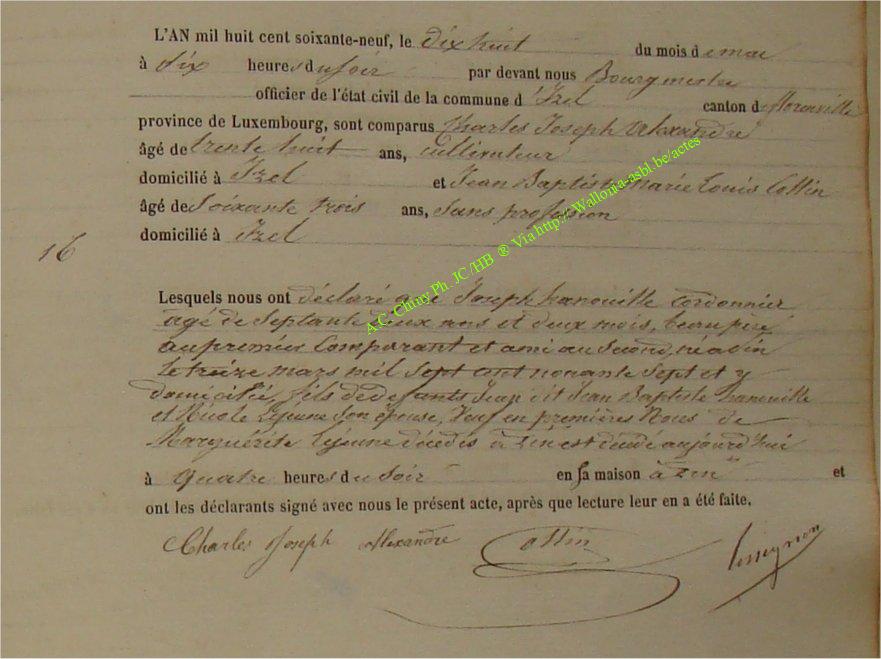 L'AN mil huit cent soixante-neuf, le dix huit du mois de mai
à six heures du soir par devant nous Bourgmestre
officier de l'état civil de la commune d'Izel canton de florenville
province de Luxembourg, sont comparus Charles Joseph Alexandre
âgé de trente huit ans, cultivateur
domicilié à Izel et Jean Baptiste Marie Louis Collin
âgé de Soixante trois ans, Sans profession
domicilié à Izel
16
Lesquels nous ont déclaré que Joseph hanouille cordonnier
agé de Septante deux ans et deux mois, beau père
au premier Comparant et ami au Second, né a
le treize mars mil Sept cent nonante Sept et y
domicilié, fils de defunts Jean dit Jean Baptiste hanouille
et Nicole Lejeune Son épouse, Veuf en premières Noces de
Marguérite Lejeune décédée à est décédé aujourd'hui
à quatre heures du Soir en sa maison à et
ont les déclarants signé avec nous le présent acte, après que lecture leur en a été faite.
Charles Joseph Alexandre Collin
A.C. Chiny Ph. JC /HB ® Via http://Wallonia-asbl.be/actes